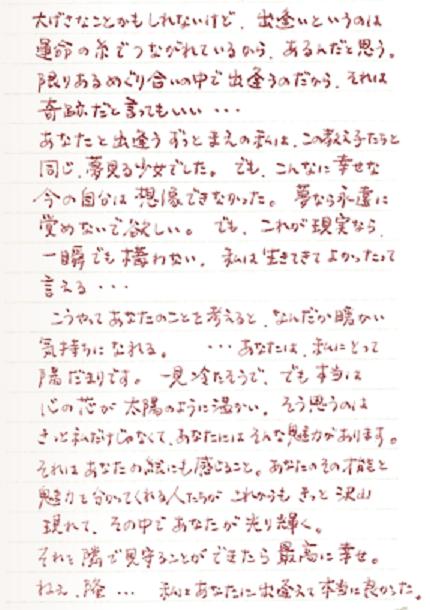 大げさなことかもしれないけど、出逢いというのは
運命の糸でつながれているから、あるんだと思う。
限りあるめぐり合いの中で出逢うのだから、それは
奇跡だと言ってもいい・・・
あなたと出逢うずっとまえの私は、この教え子たちと
同じ、夢見る少女でした。でも、こんなに幸せな
今の自分は想像できなかった。夢なら永遠に
覚めないで欲しい。でも、これが現実なら、
一瞬でも構わない、私は生きてきてよかったって
言える・・・
こうやってあなたのことを考えると、なんだか暖かい
気持ちになれる。・・・あなたは、私にとって
陽だまりです。一見冷たそうで、でも本当は
心の芯が太陽のように温かい。そう思うのは
きっと私だけじゃなくて、あなたにはそんな魅力があります。
それはあなたの絵にも感じること。あなたのその才能と
魅力を分かってくれる人たちが これからもきっと沢山
現れて、その中であなたが光り輝く。
それを隣で見守ることができたら最高に幸せ。
ねえ、隆・・・ 私はあなたに出逢えて本当に良かった。